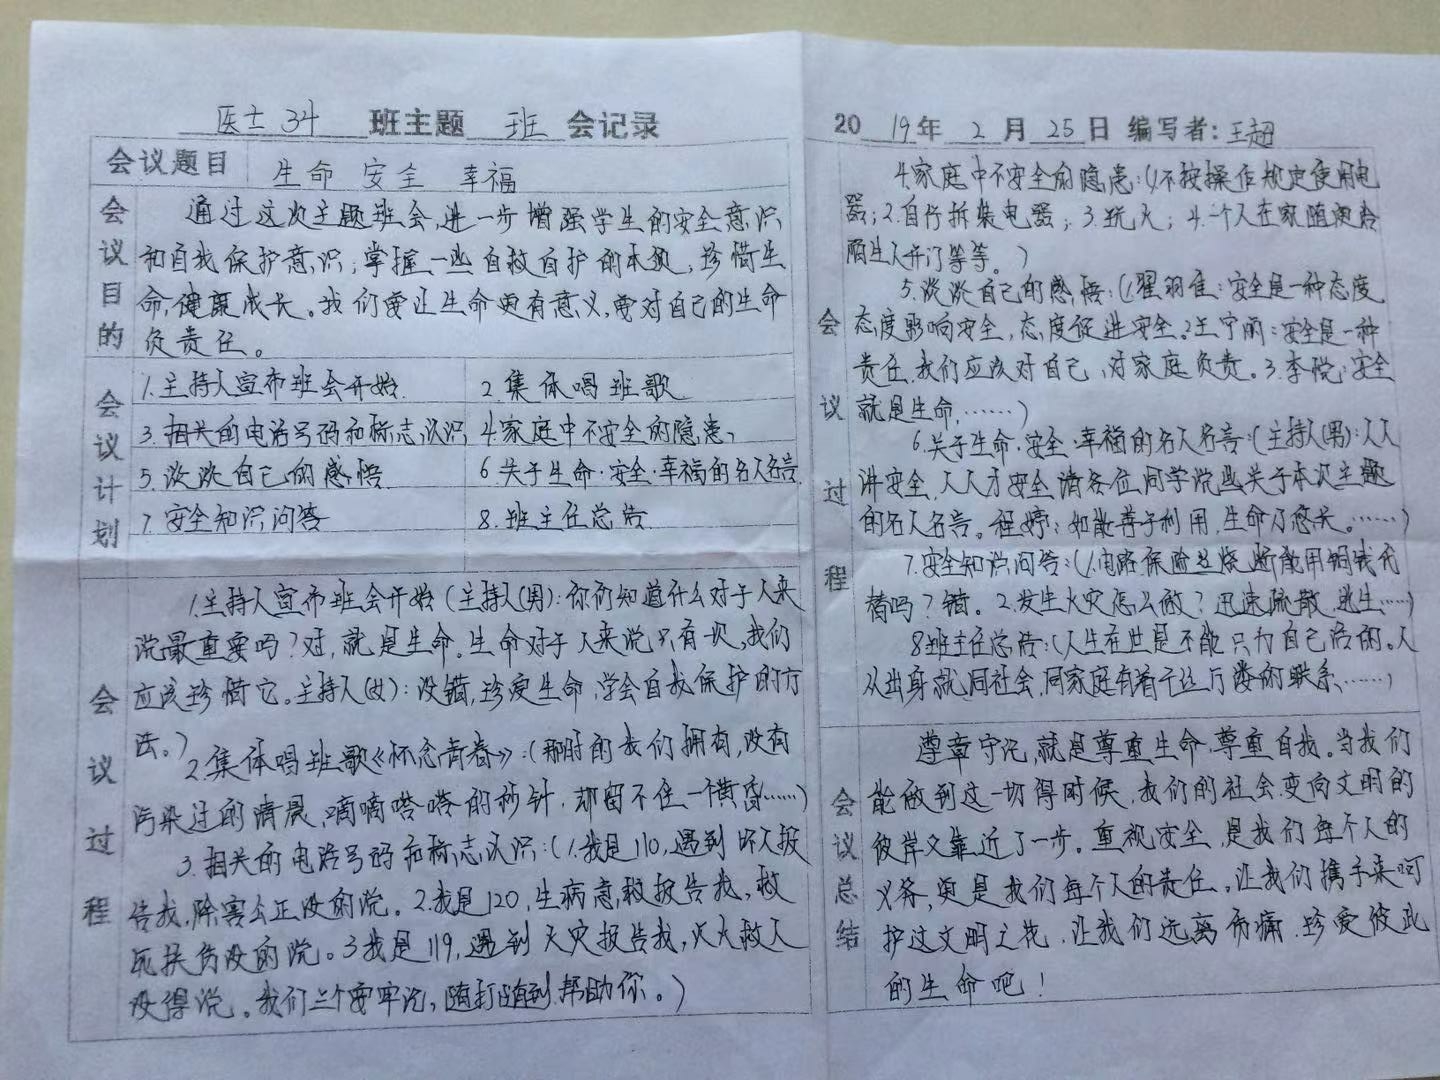 医士34 班主题 班 会记录
会议题目 生命 安全 幸福
会议目的
通过这次主题班会,进一步增强学生的安全意识
和自我保护意识;掌握一些自救自护的本领,珍惜生
命,健康成长。我们要让生命更有意义,要对自己的生命
负责任。
会议计划
1.主持人宣布班会开始. 2.集体唱班歌
3.相关的电话号码和标志认识 4.家庭中不安全的隐患,
5.谈谈自己的感悟 6.关于生命·安全·幸福的名人名言.
7.安全知识问答 8.班主任总结
会议过程
1.主持人宣布班会开始(主持人(男):你们知道什么对于人来
说最重要吗?对,就是生命。生命对于人来说只有一次,我们
应该珍惜它。主持人(女):没错,珍爱生命,学会自我保护的方
法。)
2.集体唱班歌《怀念青春》:(那时的我们拥有,没有
污染过的清晨,嘀嘀嗒嗒的秒针,却留不住一个黄昏……)
3.相关的电话号码和标志认识:(1.我是110,遇到坏人报
告我,除害公正没的说。2.我是120,生病急救报告我,救
死扶伤没的说。3我是119,遇到火灾报告我,灭火救人
没得说。我们三个要牢记,随打随到帮助你。)
2019年 2月25日 编写者:王超
4.家庭中不安全的隐患:(1.不按操作规定使用电
器;2.自行拆装电器;3.玩火;4.一个人在家随便给
陌生人开门等等。)
会议过程
5.谈谈自己的感悟:(1.翟羽佳:安全是一种态度,
态度影响安全,态度促进安全。2.王宁丽:安全是一种
责任,我们应该对自己、对家庭负责。3.李悦:安全
就是生命,……)
6.关于生命·安全·幸福的名人名言:(主持人(男):人人
讲安全,人人才安全,请各位同学说些关于本次主题
的名人名言。程婷:如能善于利用,生命乃悠长。……)
7.安全知识问答:(1.电路保险丝烧断能用铜线代
替吗?错。2.发生火灾怎么做?迅速疏散、逃生……)
8.班主任总结:(人生在世是不能只为自己活的。人
从出身就同社会,同家庭有着千丝万缕的联系……)
会议总结
遵章守纪,就是尊重生命,尊重自我。当我们
能做到这一切得时候,我们的社会变向文明的
彼岸又靠近了一步。重视安全,是我们每个人的
义务,更是我们每个人的责任,让我们携手来呵
护这文明之花,让我们远离伤痛,珍爱彼此
的生命吧!